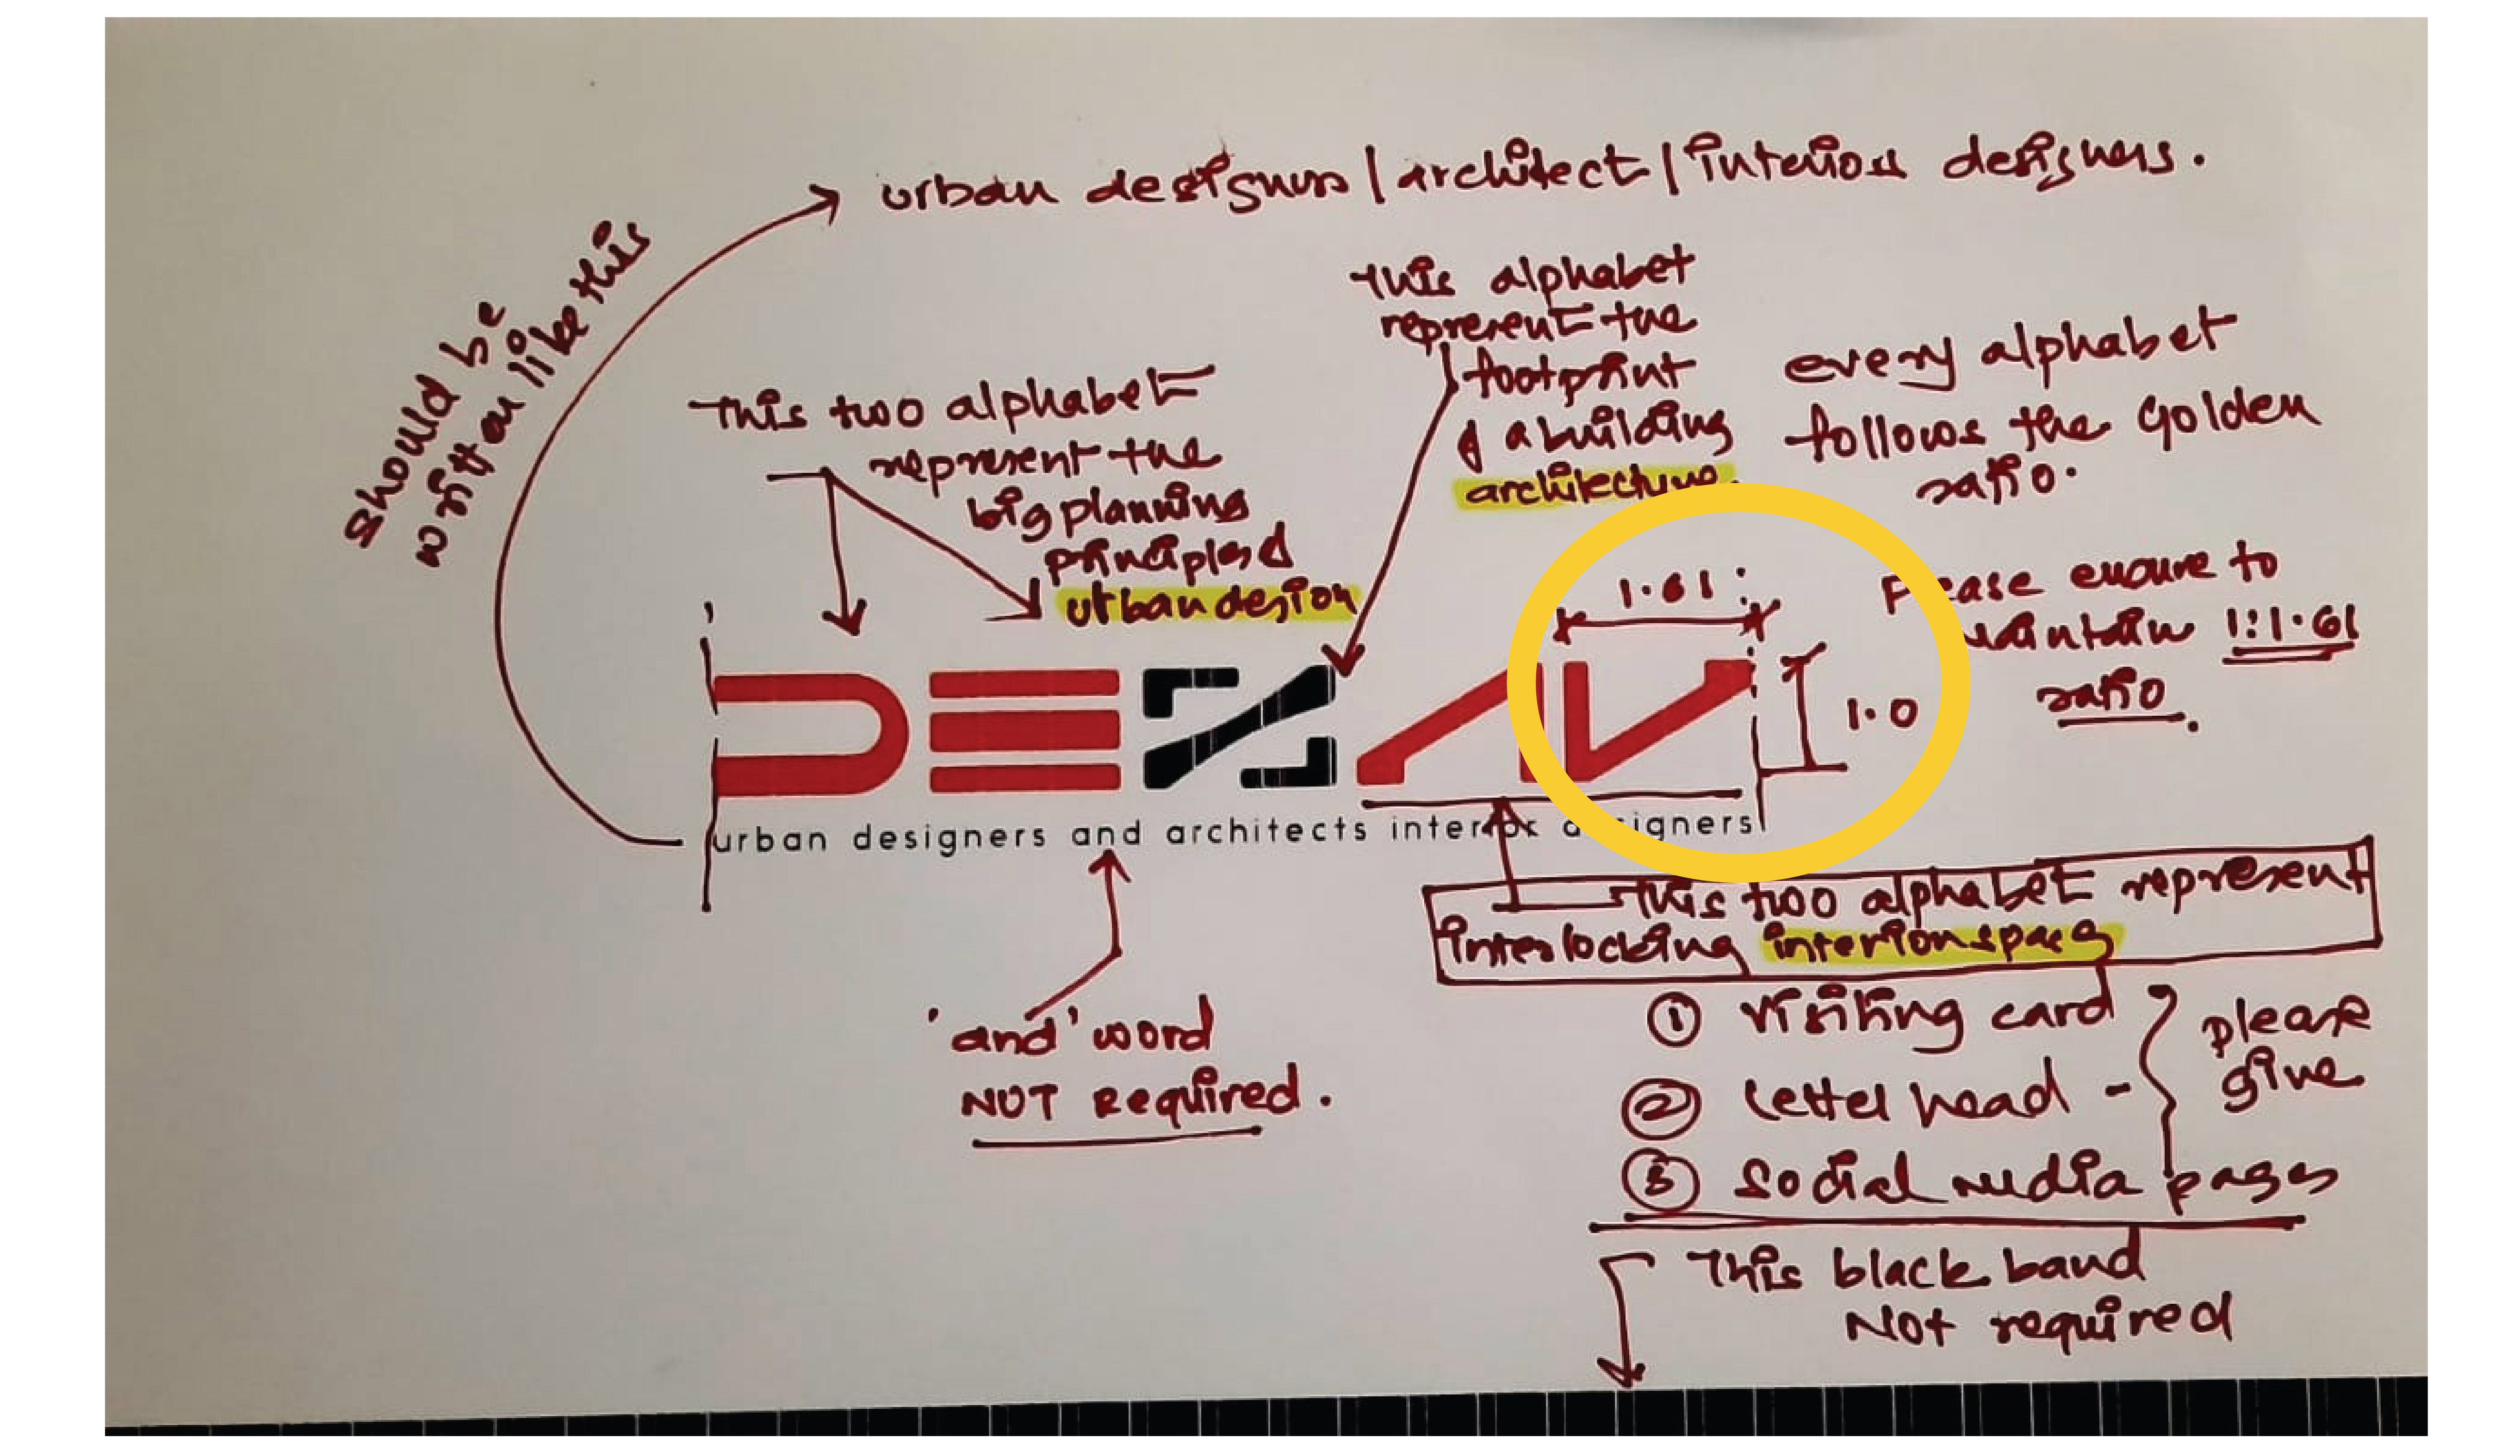 urban designers | architect | interior designers.
should be
written like this
This two alphabet
represent the
big planning
principles of
urban design
This alphabet
represent the
footprint
of a building
architecture.
every alphabet
follows the Golden
ratio.
Please ensure to
maintain 1:1.61
ratio.
1.61
1.0
DEZAV
urban designers and architects interior designers
'and' word
NOT Required.
This two alphabet represent
interlocking interior spaces
① Visiting card
② Letter head -
③ Social media pages
please
give
This black band
Not required